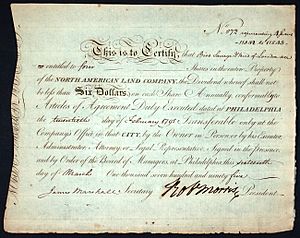 This is to Certify, that
is entitled to four Shares in the entire Property
of the NORTH AMERICAN LAND COMPANY, the Dividend whereof shall not
be less than SIX DOLLARS on each Share Annually, conformably to
Articles of Agreement Duly Executed dated at PHILADELPHIA
the twentieth day of February 1795 Transferable only at the
Company's Office in that CITY, by the Owner in Person or by his Executor
Administrator, Attorney or Legal Representative. Signed in the presence,
and by Order of the Board of Managers, at Philadelphia this sixteenth
day of March One thousand seven hundred and ninety five
James Marshall Secretary Rob Morris President